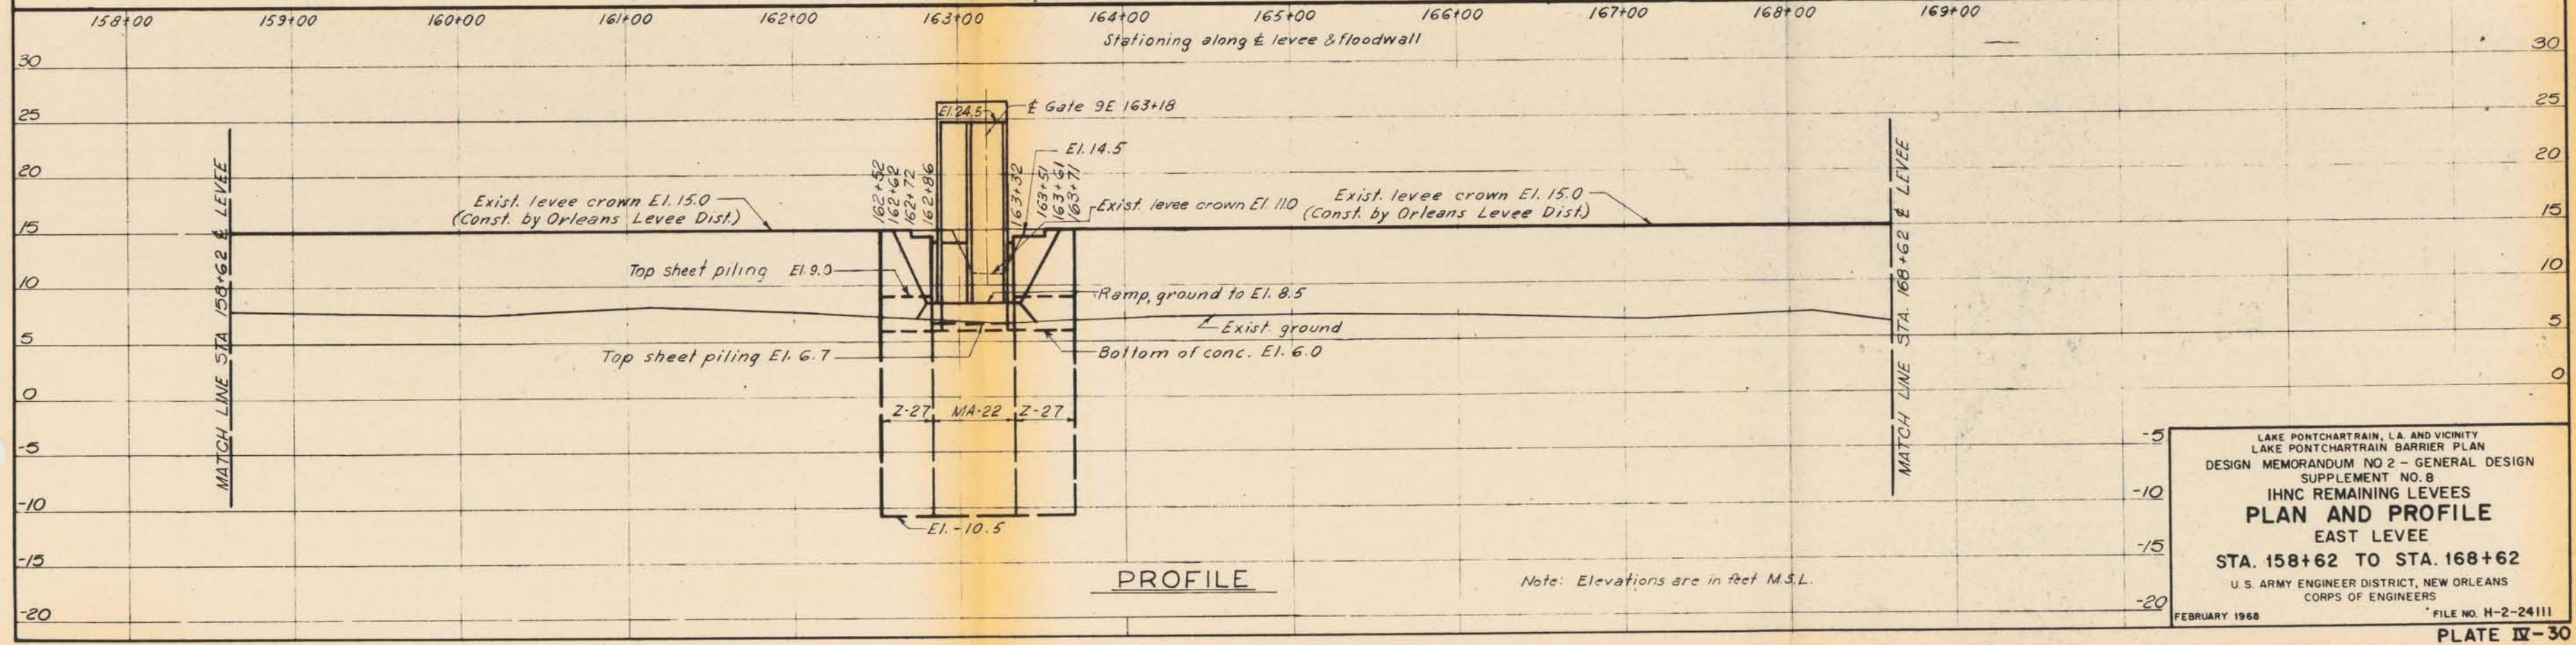 158+00 159+00 160+00 161+00 162+00 163+00 164+00 165+00 166+00 167+00 168+00 169+00
Stationing along ℄ levee & floodwall
30 30
25 25
20 20
15 15
10 10
5 5
0 0
-5 -5
-10 -10
-15 -15
-20 -20
MATCH LINE STA 158+62 ℄ LEVEE
Exist. levee crown El. 15.0
(Const. by Orleans Levee Dist.)
162+52
162+62
162+72
162+86
El. 24.5
℄ Gate 9E 163+18
El. 14.5
163+32
163+51
163+61
163+71
Exist. levee crown El. 11.0
Exist. levee crown El. 15.0
(Const. by Orleans Levee Dist.)
MATCH LINE STA. 168+62 ℄ LEVEE
Top sheet piling El. 9.0
Ramp, ground to El. 8.5
Exist. ground
Top sheet piling El. 6.7
Bottom of conc. El. 6.0
Z-27 MA-22 Z-27
El. -10.5
PROFILE
Note: Elevations are in feet M.S.L.
LAKE PONTCHARTRAIN, LA. AND VICINITY
LAKE PONTCHARTRAIN BARRIER PLAN
DESIGN MEMORANDUM NO 2 - GENERAL DESIGN
SUPPLEMENT NO. 8
IHNC REMAINING LEVEES
PLAN AND PROFILE
EAST LEVEE
STA. 158+62 TO STA. 168+62
U. S. ARMY ENGINEER DISTRICT, NEW ORLEANS
CORPS OF ENGINEERS
FEBRUARY 1968 FILE NO. H-2-24111
PLATE IV-30